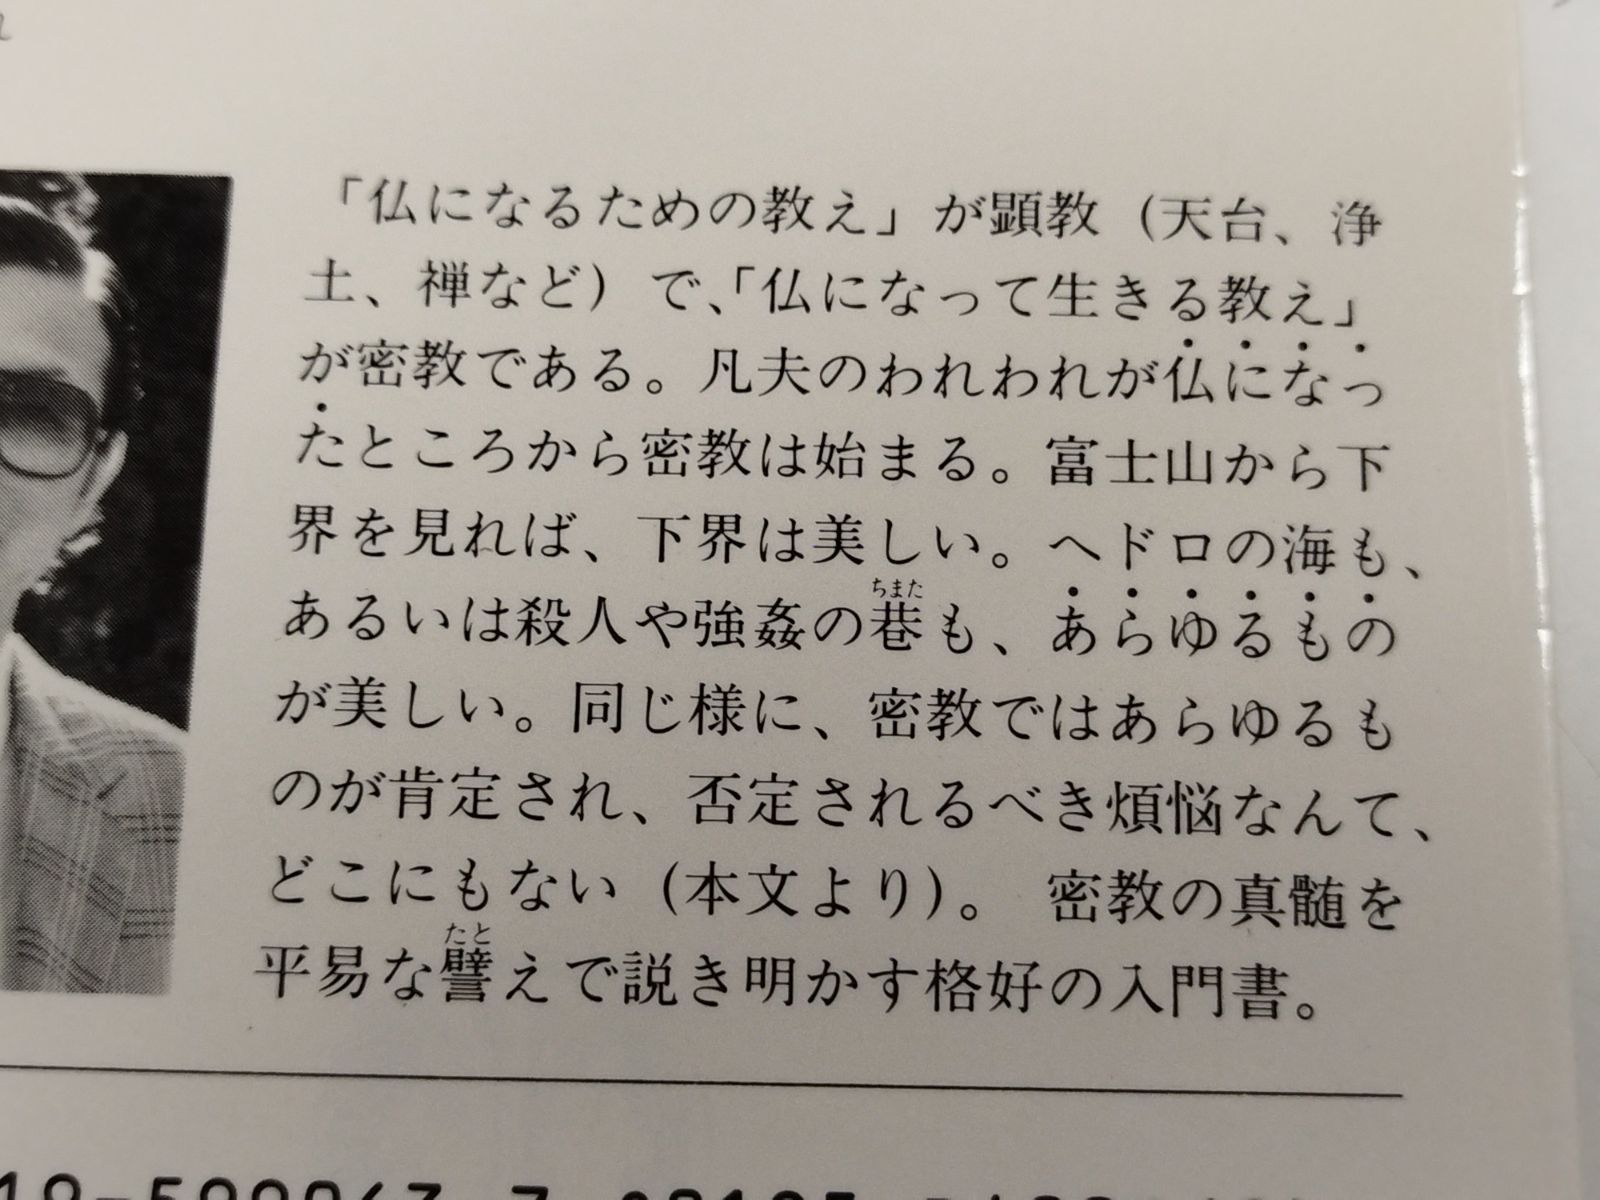 「仏になるための教え」が顕教（天台、浄
土、禅など）で、「仏になって生きる教え」
が密教である。凡夫のわれわれが仏になっ
たところから密教は始まる。富士山から下
界を見れば、下界は美しい。ヘドロの海も、
あるいは殺人や強姦の巷も、あらゆるもの
ちまた
が美しい。同じ様に、密教ではあらゆるも
のが肯定され、否定されるべき煩悩なんて、
どこにもない（本文より）。 密教の真髄を
平易な譬えで説き明かす格好の入門書。
たと